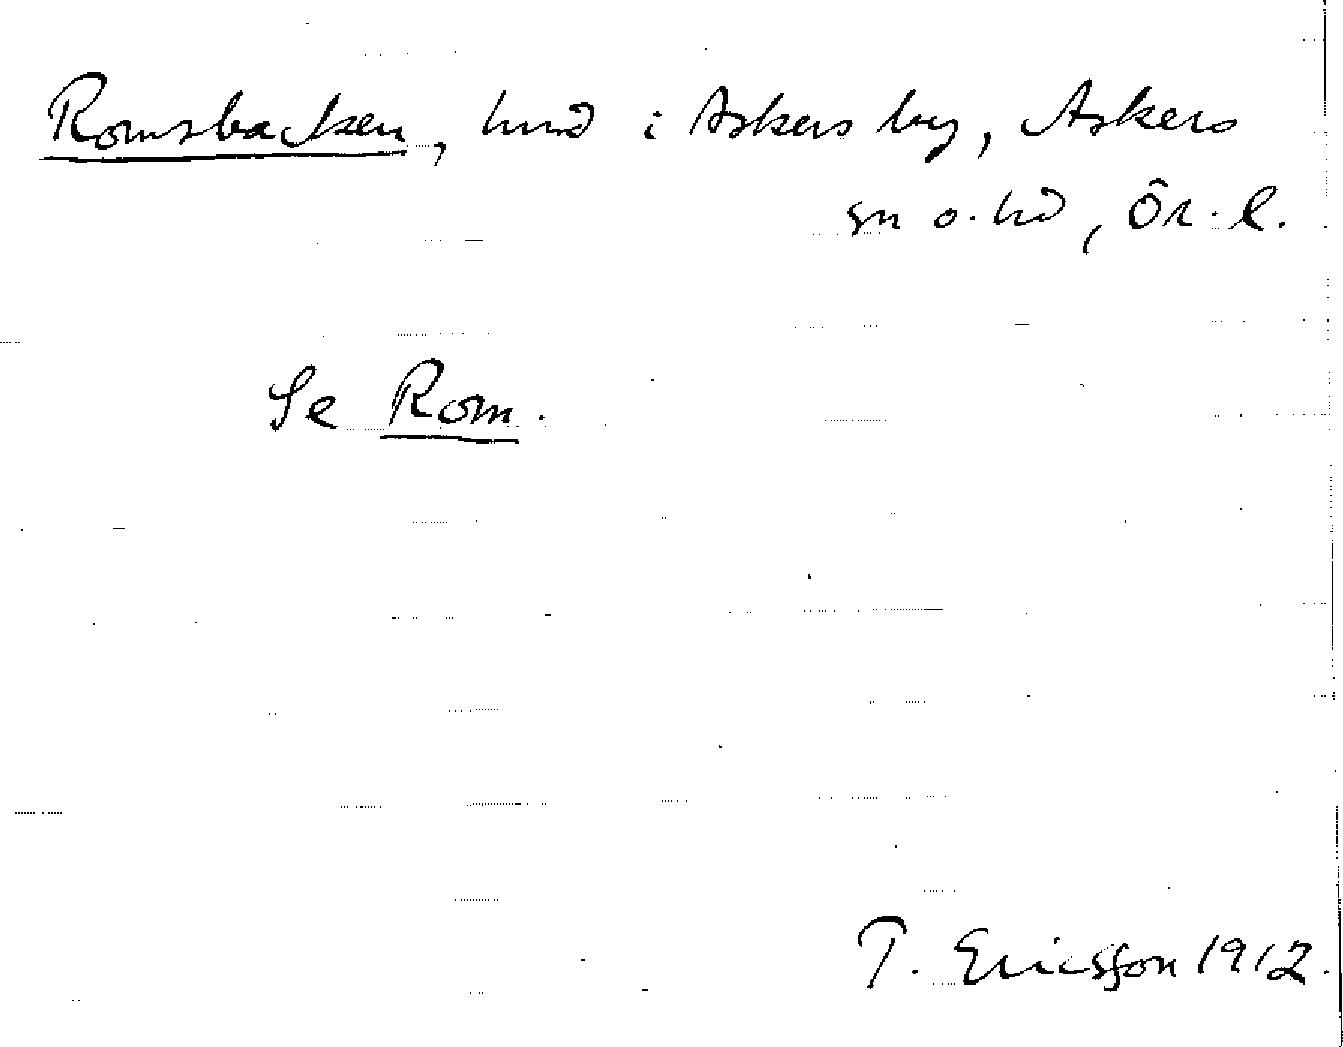 Romsbacken, hmd i Askers by, Askers
sn o. hd, Ör. l.
Se Rom.
T. Ericsson 1912.